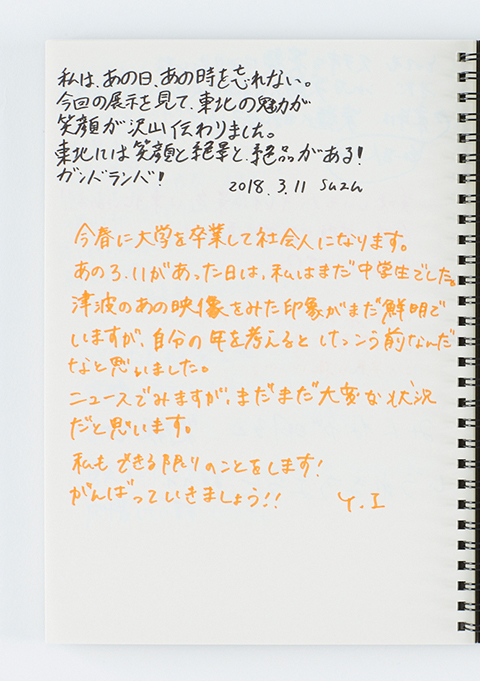 私は、あの日、あの時を忘れない。
今回の展示を見て、東北の魅力が
笑顔が沢山伝わりました。
東北には笑顔と絶景と、絶品がある!
ガンバランバ!
2018.3.11 Suzu
今春に大学を卒業して社会人になります。
あの3.11があった日は、私はまだ中学生でした。
津波のあの映像をみた印象がまだ鮮明で
いますが、自分の年を考えると けっこう前なんだ
なと思いました。
ニュースでみますが、まだまだ大変な状況
だと思います。
私もできる限りのことをします!
がんばっていきましょう!!
Y.I